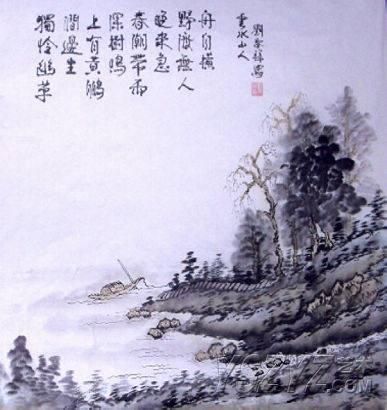 獨怜幽草
澗邊生
上有黄鸝
深樹鳴
春潮帶雨
晚來急
野渡無人
舟自橫
山人
劉 寫